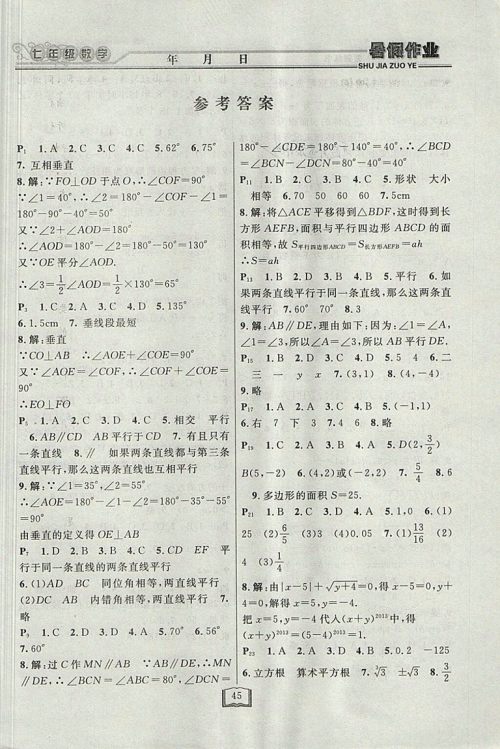 七年级数学
年 月 日
暑假作业
SHU JIA ZUO YE
参考答案
P₁ 1.A 2.C 3.C 4.C 5.62° 6.75°
7.互相垂直
8.解:∵FO⊥OD于点O,∴∠COF=90°
∵∠1=40°,∴∠2=180°-∠1-∠COF=
180°-90°-40°=50°
又∵∠2+∠AOD=180°
∴∠AOD=180°-∠2=180°-50°=130°
又∵OE平分∠AOD.
∴∠3=1/2∠AOD=1/2×130°=65°
P₃ 1.D 2.B 3.C 4.D 5.135°
6.1.5cm 7.垂线段最短
8.解:垂直
∵CO⊥AB ∴∠AOE+∠COE=90°
∵∠AOE=∠COF,∴∠COF+∠COE=90°
∴EO⊥FO
P₅ 1.A 2.C 3.D 4.C 5.相交 平行
6.AB∥CD AD∥BC 7.有且只有
一条直线 8.∥ 如果两条直线都与第三条
直线平行,那么这两条直线也互相平行
9.解:∵∠1=35°,∠2=55°
∴∠AOE=180°-∠1-∠2=180°-35°-55°
=90°
由垂直的定义得OE⊥AB
P₇ 1.D 2.B 3.D 4.C 5.CD EF 平行
于同一条直线的两条直线平行
6.(1)AD BC 同位角相等,两直线平行
(2)DC AB 内错角相等,两直线平行 7.
略
P₉ 1.C 2.B 3.C 4.B 5.C 6.70°
7.60°
8.解:过C作MN∥AB ∵AB∥DE,∴MN
∥DE,∴∠BCN=∠ABC=80°,∠DCN=
180°-∠CDE=180°-140°=40°,∴∠BCD
=∠BCN-∠DCN=80°-40°=40°
P₁₁ 1.D 2.C 3.A 4.B 5.形状 大小
相等 6.70 50 60 60 7.5cm
8.解:将△ACE平移得到△BDF,这样得到长
方形AEFB,面积与平行四边形ABCD的面
积相等,故S平行四边形ABCD=S长方形AEFB=ah
∴S=ah
P₁₃ 1.B 2.C 3.C 4.D 5.A 6.70° 7.如
果两条直线平行于同一条直线,那么这两条直
线平行 8.60°
9.解:AB∥DE,理由如下:因为:∠1=∠A,
∠1=∠A,所以∠1=∠A,所以AB平行DE.
P₁₅ 1.C 2.B 3.D 4.A 5.52 8 6.二
三 一 y x 7.(3,1) 8.(3,4)
9.略
P₁₇ 1.A 2.C 3.A 4.B 5.(-1,1)
6.右 7 下 3 7.4 6 8.略
P₁₉ 1.D 2.C 3.D 4.A 5.A 6.(2,3/2)
B(5,-2) (2,-2) (-1,2) 7.5/4 8.6
9.多边形的面积S=25.
P₂₁ 1.C 2.D 3.B 4.D 5.1,0 6.(1)
25 (2)6/5 (3)4 (4)0.05 7.(1)13/16 (2)
4 (3)1/4
8.解:由|x-5|+√(y+4)=0,得x-5=0且y
+4=0,解得x=5,y=-4.
把x=5,y=-4代入(x+y)²⁰¹³中,得
(x+y)²⁰¹³=(5-4)²⁰¹³=1.
P₂₃ 1.D 2.B 3.D 4.B 5.0.2 -125
6.立方根 算术平方根 7.∛3 ±√3 8.3/2
45